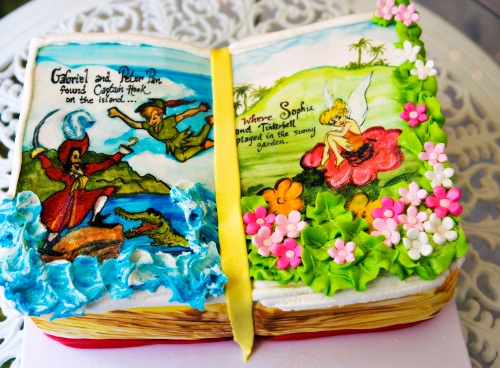 Gabriel and Peter Pan
found Captain Hook
on the island...
Where Sophia
and Tinkerbell
played in the sunny
garden..